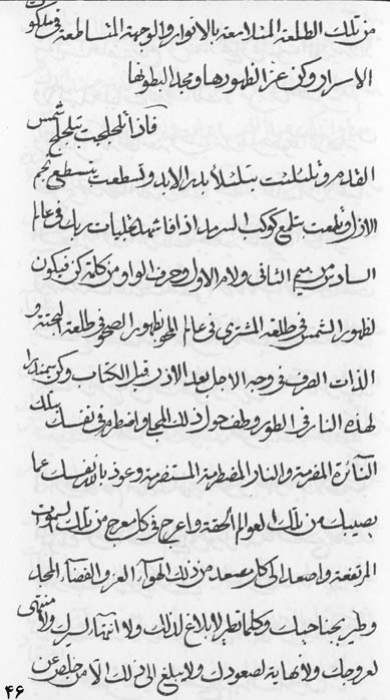 من تلك الطلعة المتلامعة بالانوار والوجهة المتساطعة في ملكوت
الاسرار وكن عز الظهورها ومجد البطونها
فاذا تلجلجت بتلجلج شمس
القدم وتلئلئت بتلئلأ بدر الابد وتسطعت بتسطع نجم
الازل وتلمعت بتلمع كوكب السرمد اذا فاشهد تجليات ربك في عالم
السادس ميم الثاني ولام الاول وحرف الواو من كلمة كن فيكون
لظهور الشمس في طلعة المشتري في عالم المحو بظهور الصحو في طلعة
الذات الصرف في وجه الاجل بعد الاذن قبل الكتاب وكن
لهذه النار في الطور وطف حول ذلك واضطرم في نفسك بتلك
النائرة المفرمة والنار المضطرمة وعوذ بالله نفسك عما
يصيبك من تلك العوالم الحقة واعرج في كل معرج من تلك السموات
المرتفعة واصعد الى كل مصعد من ذلك الهواء العز والفضاء المجد
وطير بجناحيك وكلما تطير لا بلاغ لذلك ولا انتهاء لسرك ولا منتهى
لعروجك ولا نهاية لصعودك ولا يبلغ الى ذلك الا من خلص عن
۴۶